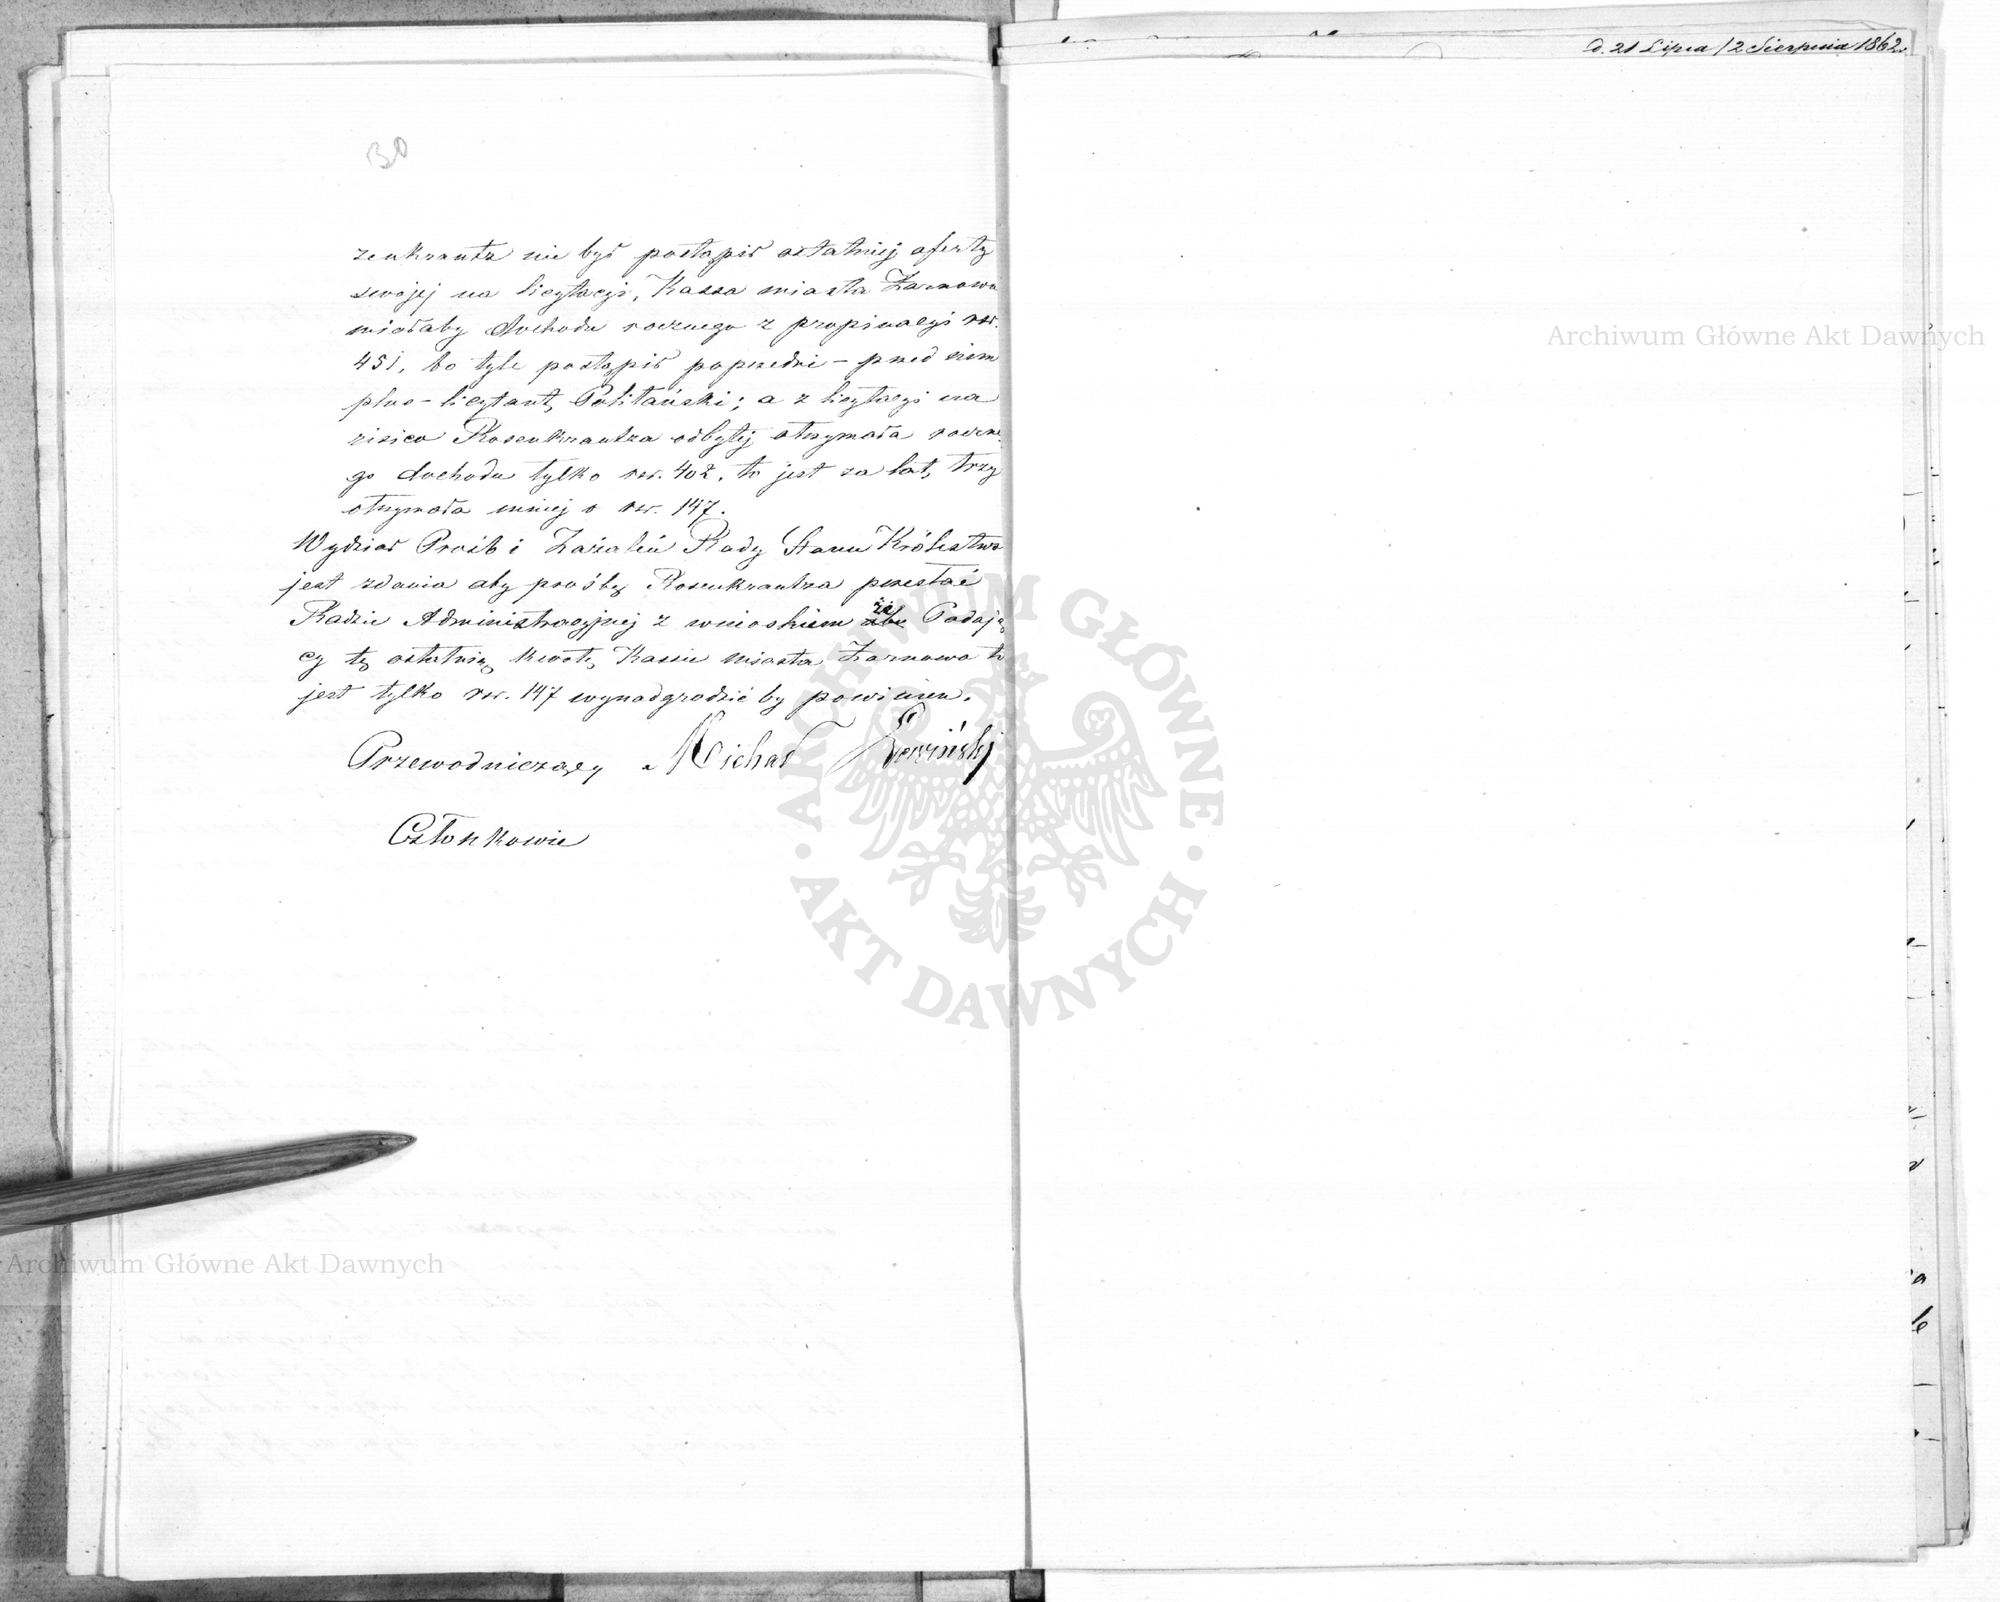 d. 21 Lipca / 2 Sierpnia 1862
30
zenkrantz nie był postąpił ostatniej oferty
swojej na licytacyi, Kassa miasta Żarnowa
miałaby dochodu rocznego z propinacyi rsr.
451, bo tyle postąpił poprzedni – przed nim
plus – licytant, Politański; a z licytacyi na
risico Rosenkrantza odbytej otrzymała roczne
go dochodu tylko rsr. 402, to jest za lat, trzy
otrzymała mniej o rsr. 147.
Wydział Próśb i Zażaleń Rady Stanu Królestwa
jest zdania aby prośbę Rosenkrantza przesłać
Radzie Administracyjnej z wnioskiem że Podają
cy tę ostatnią kwotę, Kassie miasta Żarnowa to
jest tylko rsr. 147 wynadgrodzić by powinien.
Przewodniczący Michał
Członkowie
Archiwum Główne Akt Dawnych
ARCHIWUM GŁÓWNE AKT DAWNYCH
Archiwum Główne Akt Dawnych